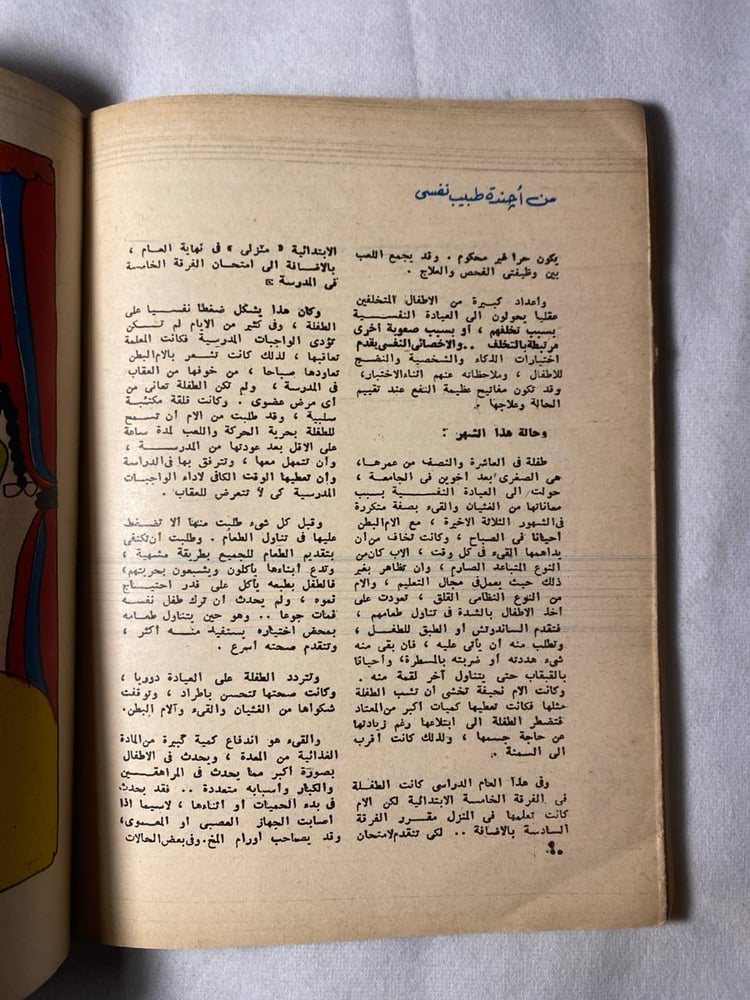 من أجندة طبيب نفسى
يكون حرا غير محكوم . وقد يجمع اللعب
بين وظيفتى الفحص والعلاج .
وأعداد كبيرة من الاطفال المتخلفين
عقليا يحولون الى العيادة النفسية
بسبب تخلفهم ، أو بسبب صعوبة اخرى
مرتبطة بالتخلف .. والاخصائى النفسى يقدم
اختبارات الذكاء والشخصية والنضج
للاطفال ، وملاحظاته عنهم اثناء الاختبار،
وقد تكون مفاتيح عظيمة النفع عند تقييم
الحالة وعلاجها .
وحالة هذا الشهر :
طفلة فى العاشرة والنصف من عمرها،
هى الصغرى بعد أخوين فى الجامعة ،
حولت الى العيادة النفسية بسبب
معاناتها من الغثيان والقىء بصفة متكررة
فى الشهور الثلاثة الاخيرة ، مع الام البطن
أحيانا فى الصباح ، وكانت تخاف من أن
يداهمها القىء فى كل وقت ، الاب كان من
النوع المتباعد الصارم ، وان تظاهر بغير
ذلك حيث يعمل فى مجال التعليم ، والام
من النوع النظامى القلق ، تعودت على
أخذ الاطفال بالشدة فى تناول طعامهم ،
فتقدم الساندوتش أو الطبق للطفل ،
وتطلب منه أن يأتى عليه ، فان بقى منه
شىء هددته أو ضربته بالمسطرة، وأحيانا
بالقبقاب حتى يتناول آخر لقمة منه .
وكانت الام نحيفة تخشى أن تشب الطفلة
مثلها فكانت تعطيها كميات أكبر من المعتاد
فتضطر الطفلة الى ابتلاعها رغم زيادتها
عن حاجة جسمها ، ولذلك كانت أقرب
الى السمنة .
وفى هذا العام الدراسى كانت الطفلة
فى الفرقة الخامسة الابتدائية لكن الام
كانت تعلمها فى المنزل مقرر الفرقة
السادسة بالاضافة .. لكى تتقدم لامتحان
الابتدائية « منزلى » فى نهاية العام ،
بالاضافة الى امتحان الفرقة الخامسة
فى المدرسة
وكان هذا يشكل ضغطا نفسيا على
الطفلة ، وفى كثير من الايام لم تكن
تؤدى الواجبات المدرسية فكانت المعلمة
تعاقبها ، لذلك كانت تشعر بالام البطن
تعاودها صباحا ، من خوفها من العقاب
فى المدرسة ، ولم تكن الطفلة تعانى من
أى مرض عضوى . وكانت قلقة مكتئبة
سلبية ، وقد طلبت من الام أن تسمح
للطفلة بحرية الحركة واللعب لمدة ساعة
على الاقل بعد عودتها من المدرسة ،
وأن تتمهل معها ، وتترفق بها فى الدراسة
وأن تعطيها الوقت الكافى لاداء الواجبات
المدرسية كى لا تتعرض للعقاب .
وقبل كل شىء طلبت منها ألا تضغط
عليها فى تناول الطعام . وطلبت أن تكتفى
بتقديم الطعام للجميع بطريقة مشهية ،
وتدع أبناءها يأكلون ويشبعون بحريتهم،
فالطفل بطبعه يأكل على قدر احتياج
نموه ، ولم يحدث أن ترك طفل نفسه
فمات جوعا .. وهو حين يتناول طعامه
بمحض اختياره يستفيد منه أكثر ،
وتتقدم صحته أسرع .
وتتردد الطفلة على العيادة دوريا ،
وكانت صحتها تتحسن باطراد ، وتوقفت
شكواها من الغثيان والقىء وآلام البطن.
والقىء هو اندفاع كمية كبيرة من المادة
الغذائية من المعدة ، ويحدث فى الاطفال
بصورة أكبر مما يحدث فى المراهقين
والكبار وأسبابه متعددة .. فقد يحدث
فى بدء الحميات أو أثناءها ، لاسيما اذا
أصابت الجهاز العصبى أو المعوى،
وقد يصاحب أورام المخ. وفى بعض الحالات